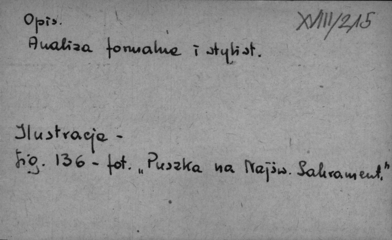 Opis.
XVIII/215
Analiza formalna i stylist.
Ilustracje -
fig. 136 - fot. „Puszka na Najśw. Sakrament."